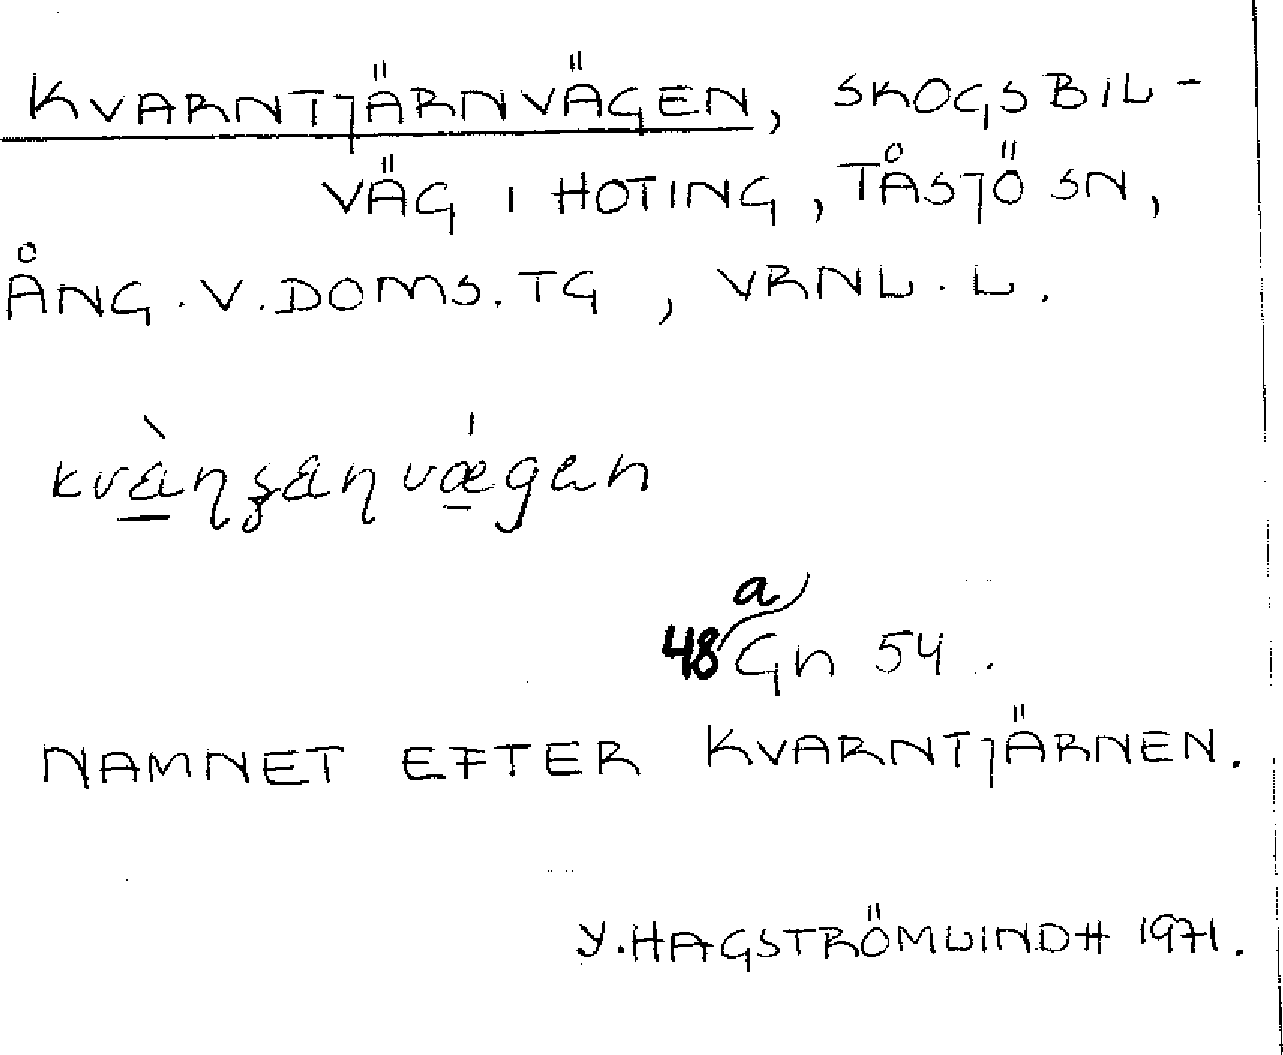 KVARNTJÄRNVÄGEN, SKOGSBIL-
VÄG I HOTING, TÅSJÖ SN,
ÅNG.V.DOMS.TG, VRNL.L.
a
48 Gn 54.
NAMNET EFTER KVARNTJÄRNEN.
Y.HAGSTRÖMLINDH 1971.